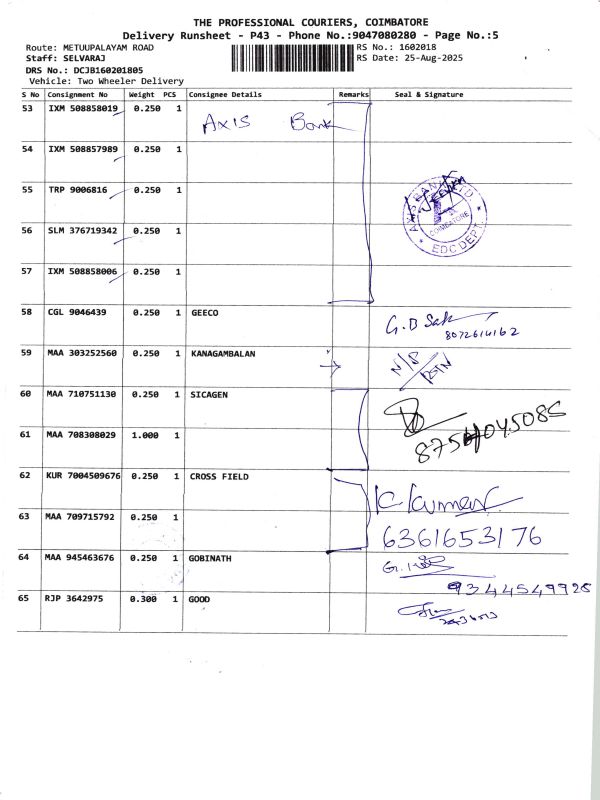 THE PROFESSIONAL COURIERS, COIMBATORE
Delivery Runsheet - P43 - Phone No.:9047080280 - Page No.:5
Route: METUUPALAYAM ROAD
RS No.: 1602018
Staff: SELVARAJ
RS Date: 25-Aug-2025
DRS No.: DCJB160201805
Vehicle: Two Wheeler Delivery
S No Consignment No Weight PCS Consignee Details Remarks Seal & Signature
53 IXM 508858019 0.250 1 Axis Bank
54 IXM 508857989 0.250 1
55 TRP 9006816 0.250 1
AXIS BANK LTD
COIMBATORE
EDC DEPT.
56 SLM 376719342 0.250 1
57 IXM 508858006 0.250 1
58 CGL 9046439 0.250 1 GEECO
8072614162
59 MAA 303252560 0.250 1 KANAGAMBALAN N/S
RTN
60 MAA 710751130 0.250 1 SICAGEN
61 MAA 708308029 1.000 1
62 KUR 7004509676 0.250 1 CROSS FIELD K. Kumar
63 MAA 709715792 0.250 1 6361653176
64 MAA 945463676 0.250 1 GOBINATH
9344549928
65 RJP 3642975 0.300 1 GOOD